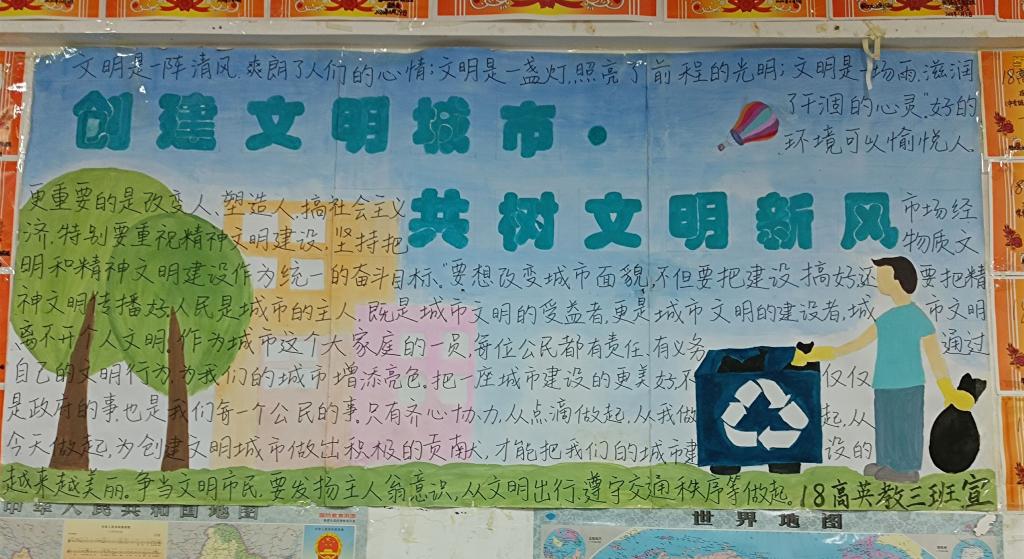 文明是一阵清风,爽朗了人们的心情;文明是一盏灯,照亮了前程的光明;文明是一场雨,滋润
创建文明城市·
了干涸的心灵"好的
环境可以愉悦人,
共树文明新风
更重要的是改变人、塑造人,搞社会主义市场经
济,特别要重视精神文明建设,坚持把物质文
明和精神文明建设作为统一的奋斗目标."要想改变城市面貌,不但要把建设搞好,还要把精
神文明传播好,人民是城市的主人,既是城市文明的受益者,更是城市文明的建设者,城市文明
离不开个人文明,作为城市这个大家庭的一员,每位公民都有责任,有义务通过
自己的文明行为,为我们的城市增添亮色.把一座城市建设的更美好不仅仅
是政府的事,也是我们每一个公民的事.只有齐心协力,从点滴做起,从我做起,从
今天做起,为创建文明城市做出积极的贡献,才能把我们的城市建设的
越来越美丽。争当文明市民,要发扬主人翁意识,从文明出行,遵守交通秩序等做起。18高英教三班宣
中华人民共和国地图
世界地图